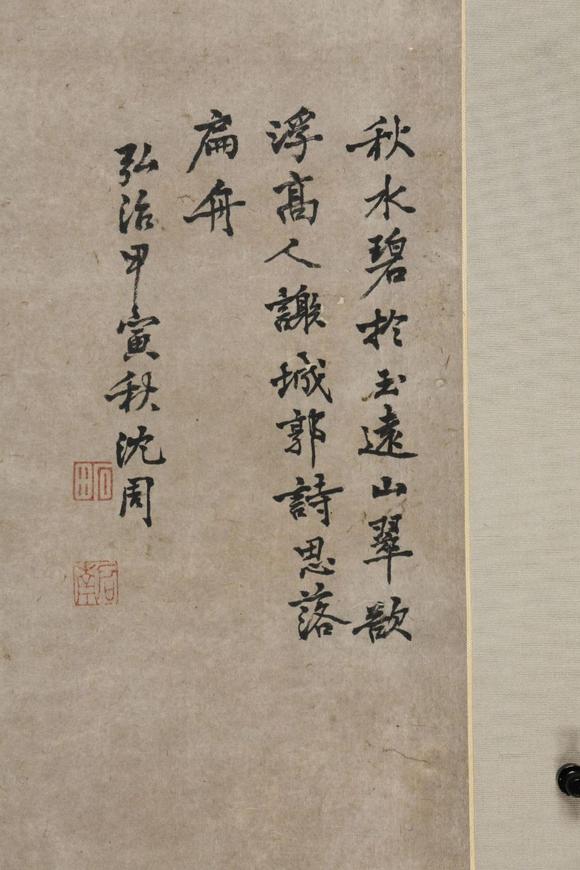 秋水碧於玉遠山翠欲
浮高人謝城郭詩思落
扁舟
弘治甲寅秋沈周
啟南